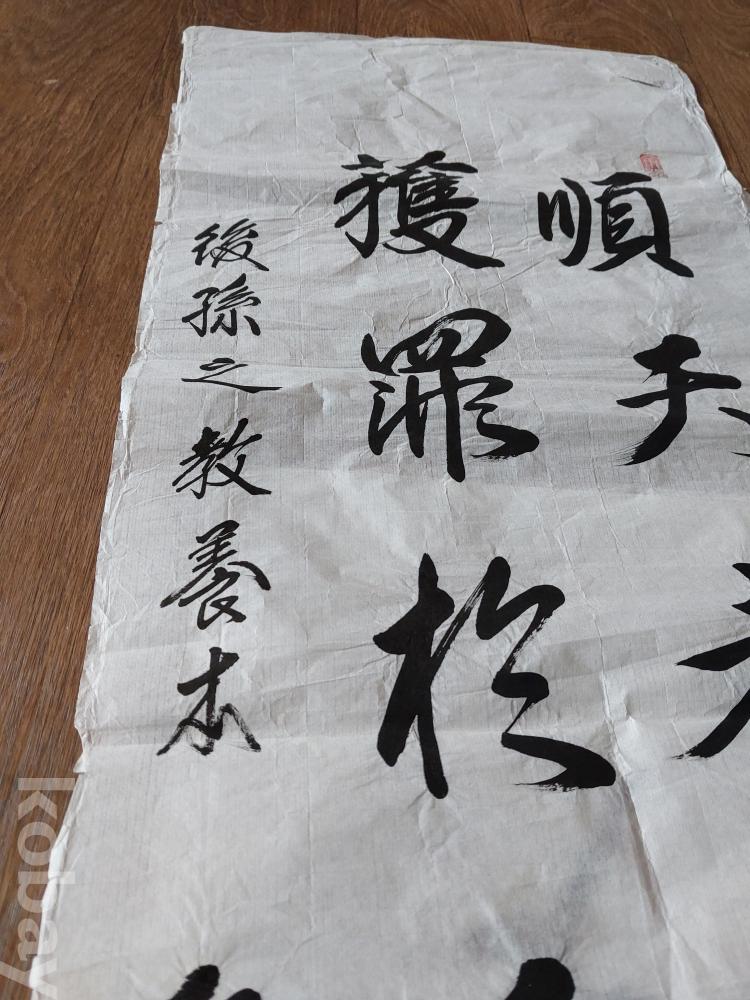 順天
獲罪於
後孫之教養本
kobay